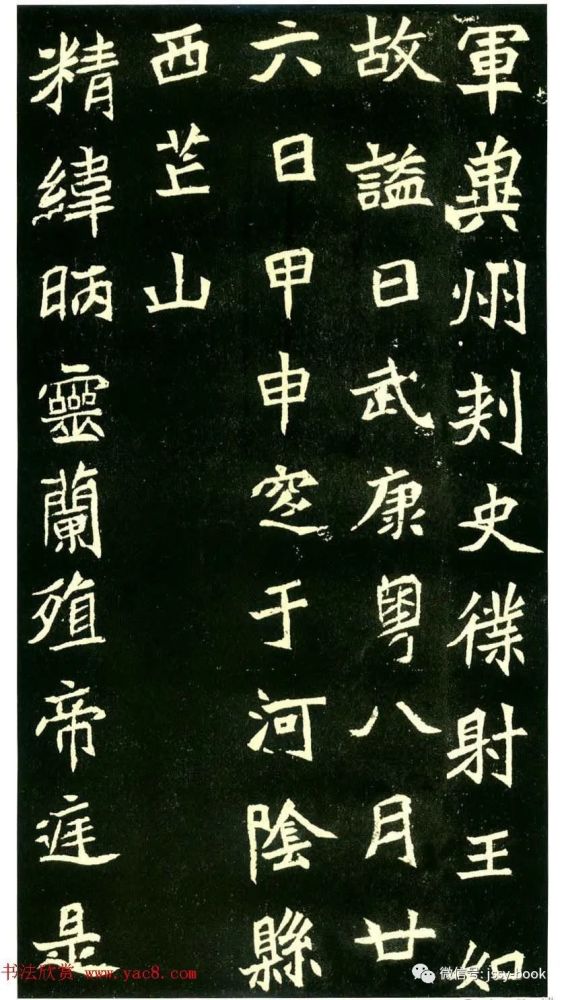 軍兾州刾史㒒射王如
故謚曰武康粤八月廿
六日甲申窆于河陰縣
西芒山
精緯昞靈蘭殖帝遈是
书法欣赏 www.yac8.com
微信号: jssy-book